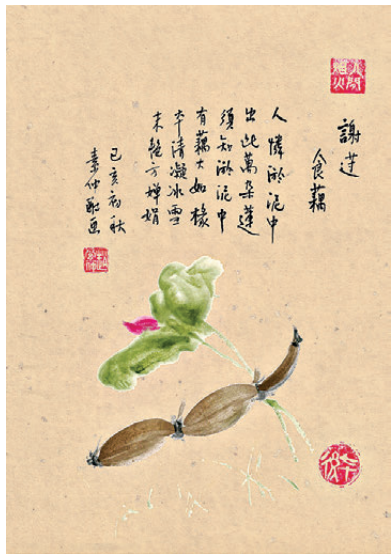 謝蓮
食藕
人憐淤泥中
出此萬朵蓮
須知淤泥中
有藕大如椽
夲清凝冰雪
未方嬋娟
己亥初秋
素仲画